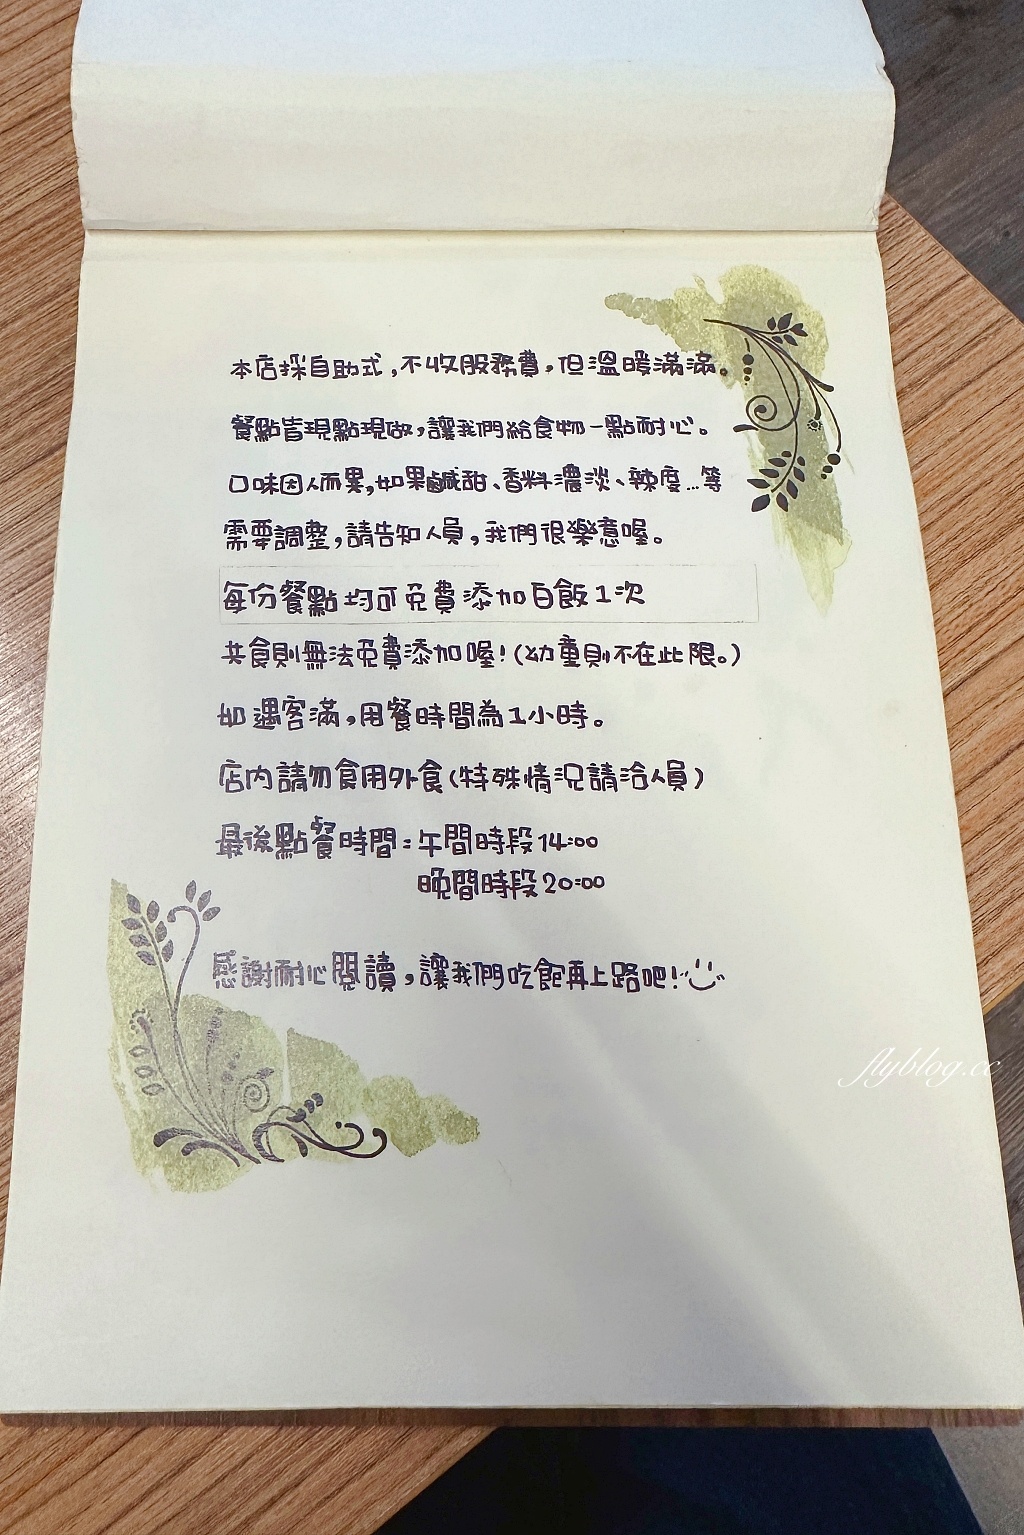 本店採自助式,不收服務費,但溫暖滿滿。
餐點皆現點現做,讓我們給食物一點耐心。
口味因人而異,如果鹹甜、香料濃淡、辣度...等
需要調整,請告知人員,我們很樂意喔。
每份餐點均可免費添加白飯1次
共食則無法免費添加喔!(幼童則不在此限。)
如遇客滿,用餐時間為1小時。
店內請勿食用外食(特殊情況請洽人員)
最後點餐時間:午間時段14:00
晚間時段20:00
感謝耐心閱讀,讓我們吃飽再上路吧!
flyblog.cc